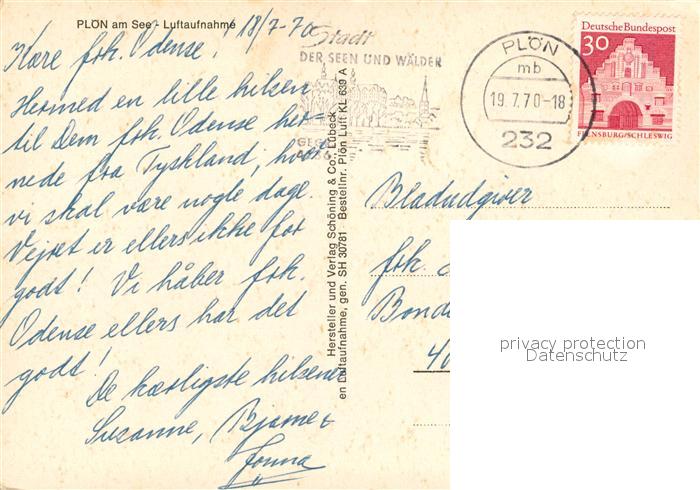 PLÖN am See - Luftaufnahme
18/7-70
Kære frk. Odense,
Hermed en lille hilsen
til Dem frk. Odense her-
nede fra Tyskland, hvor
vi skal være nogle dage.
Vejret er ellers ikke for
godt! Vi håber frk.
Odense ellers har det
godt!
De kærligste hilsener
Suzanne, Bjarne &
Jonna
Hersteller und Verlag Schöning & Co., Lübeck
en Luftaufnahme, gen. SH 30781 · Bestellnr. Plön Luft KL 639 A
Stadt
DER SEEN UND WÄLDER
PLÖN
mb
19.7.70-18
232
Deutsche Bundespost
30
FLENSBURG/SCHLESWIG
Bladudgiver
frk.
Bonde
40
privacy protection
Datenschutz